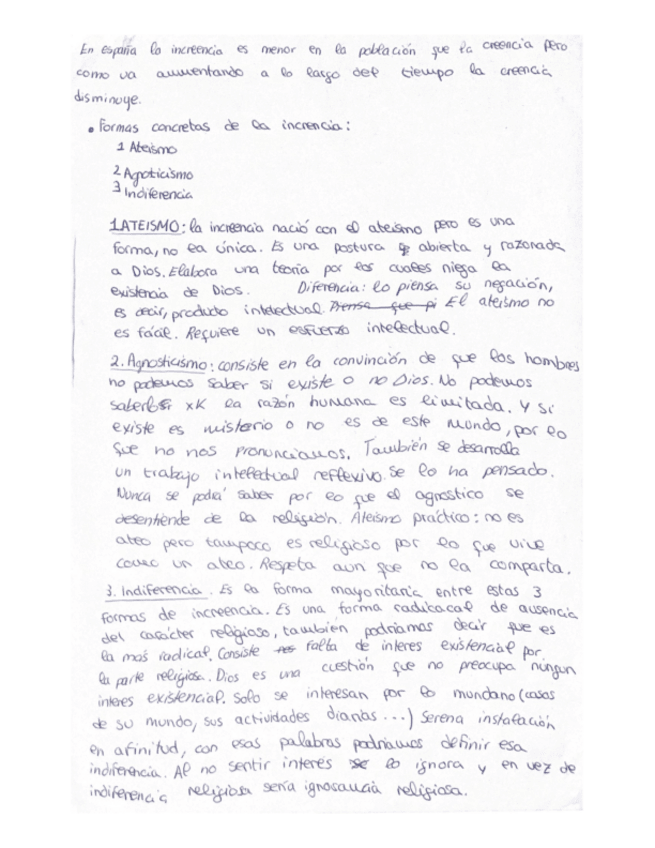 En españa la increencia es menor en la población que la creencia pero
como va aumentando a lo largo del tiempo la creencia
disminuye.
• Formas concretas de la increncia:
1 Ateismo
2 Agnoticismo
3 Indiferencia
1ATEISMO: la increencia nació con el ateismo pero es una
forma, no la única. Es una postura abierta y razonada
a Dios. Elabora una teoria por las cuales niega la
existencia de Dios. Diferencia: lo piensa su negación,
es decir, producto intelectual. Piensa que pi El ateismo no
es fácil. Requiere un esfuerzo intelectual.
2. Agnosticismo: consiste en la convinción de que los hombres
no podemos saber si existe o no Dios. No podemos
saberlo xK la razón humana es limitada. Y si
existe es misterio o no es de este mundo, por lo
que no nos pronunciamos. También se desarrolla
un trabajo intelectual reflexivo. Se lo ha pensado.
Nunca se podrá saber por lo que el agnostico se
desentiende de la religión. Ateismo práctico: no es
ateo pero tampoco es religioso por lo que vive
como un ateo. Respeta aun que no la comparta.
3. Indiferencia. Es la forma mayoritaria entre estas 3
formas de increencia. Es una forma radicacal de ausencia
del carácter religioso, también podriamos decir que es
la mas radical. Consiste falta de interes existencial por
la parte religiosa. Dios es una cuestión que no preocupa ningun
interes existencial. Solo se interesan por lo mundano (cosas
de su mundo, sus actividades diarias...) Serena instalación
en afinitud, con esas palabras podriamos definir esa
indiferencia. Al no sentir interés se lo ignora y en vez de
indiferencia religiosa sería ignorancia religiosa.